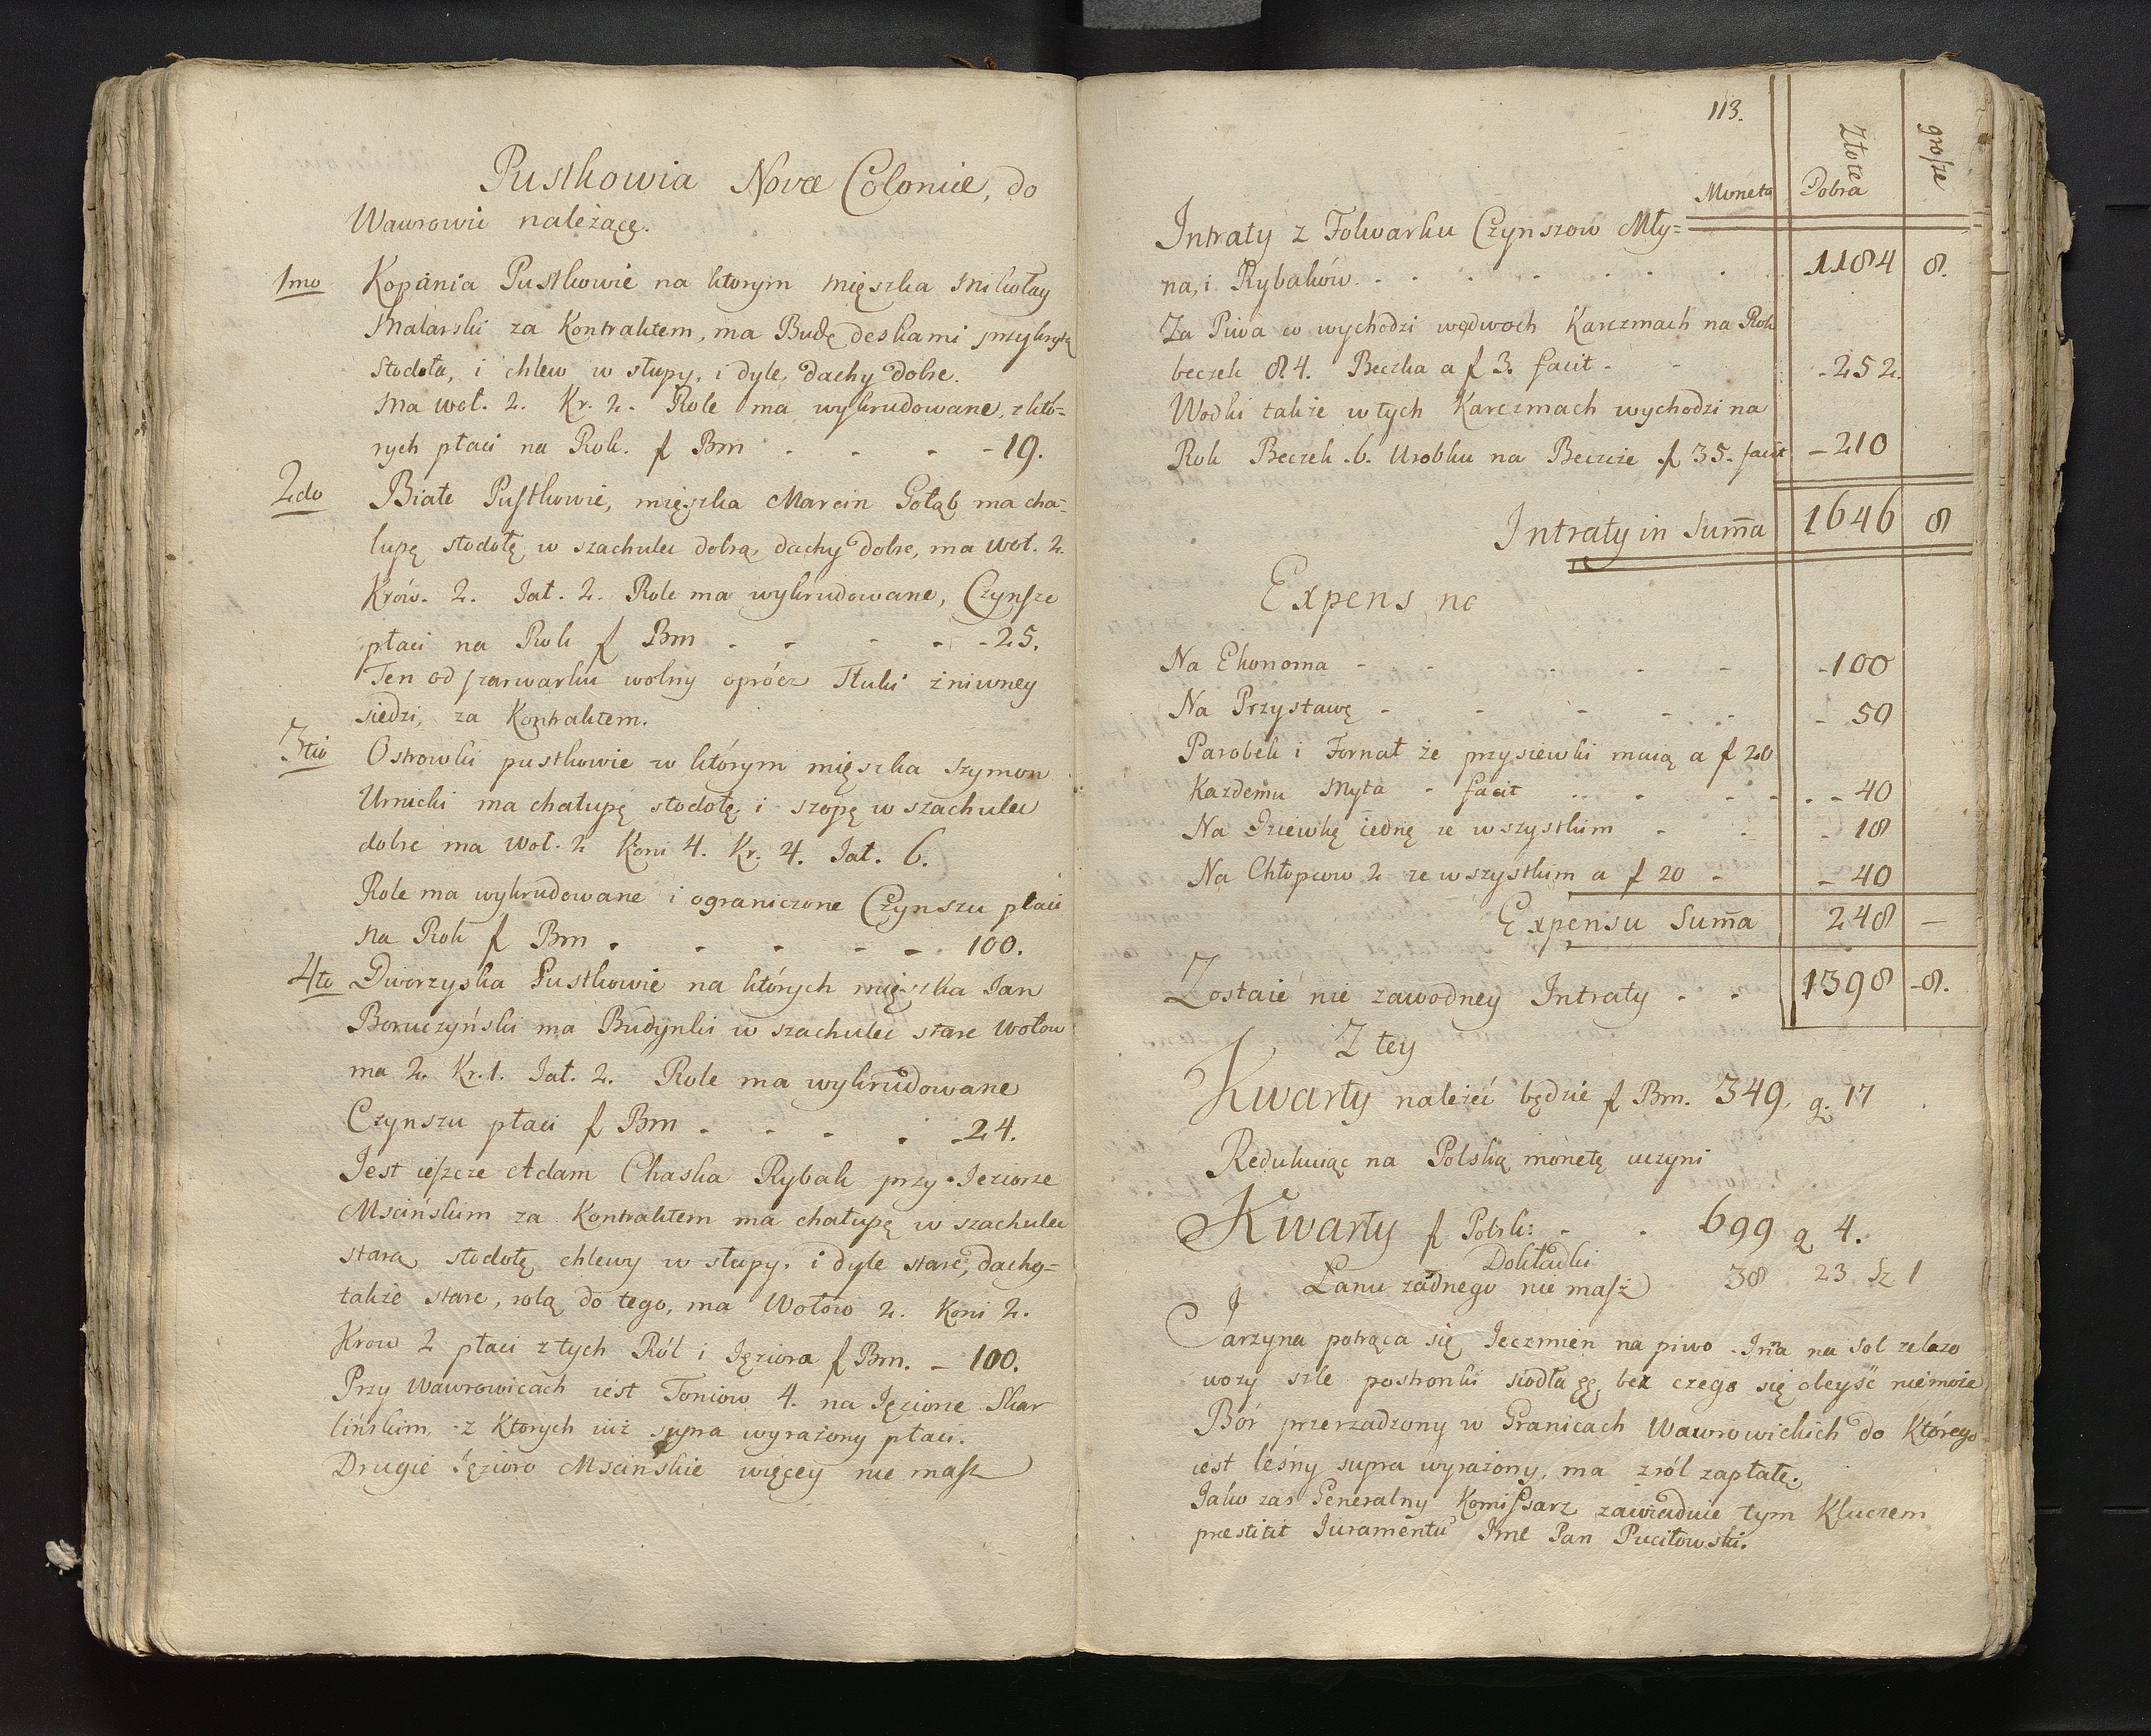 Pustkowia Novæ Coloniæ, do
Wawrowic należącę.
1mo Kopania Pustkowie na ktorym mięszka Mikołay
Malarski za Kontraktem, ma Budę deskami przykrytą
Stodoła, i chlew w słupy, i dyle, dachy dobre.
Ma woł. 2. Kr. 2. Role ma wykrudowane, z któ=
rych płaci na Rok. f Bm - - - - 19.
2do Białe Pustkowie, mięszka Marcin Gołąb ma cha=
lupę stodołę w szachulec dobrą, dachy dobre, ma woł. 2.
Krów. 2. Jał. 2. Role ma wykrudowane, Czynsze
płaci na Rok f Bm - - - - 25.
Ten od szarwarku wolny oprócz Tłuki żniwney
siedzi, za Kontraktem.
3tio Ostrowki pustkowie w którym mięszka Szymon
Urnicki ma chałupę stodołę i szopę w szachulec
dobre ma Woł. 2 Koni 4. Kr. 4. Jał. 6.
Role ma wykrudowane i ograniczone Czynszu płaci
na Rok f Bm - - - - 100.
4to Dworzyska Pustkowie na których mięszka Jan
Boruczyński ma Budynki w szachulec stare Wołow
ma 2. Kr. 1. Jał. 2. Role ma wykrudowane
Czynszu płaci f Bm - - - - 24.
Jest ieszcze Adam Chaska Rybak przy Jeziorze
Mscińskim za Kontraktem ma chałupę w szachulec
starą stodołę chlewy w słupy. i dyle stare, dachy=
także stare, rolą do tego, ma Wołow 2. Koni 2.
Krow 2 płaci z tych Ról i Jęziora f Bm. - 100.
Przy Wawrowicach iest Toniow 4. na Jęziorze Skar
lińskim, z Ktorych iuż supra wyrażony płaci.
Drugie Jęzioro Mscinskie więcey nie masz
113.
Moneta Złote Dobra grosze
Intraty z Folwarku Czynszow Mły=
na, i Rybaków. - - - - 1184 8.
Za Piwa co wychodzi wędwoch Karczmach na Rok
beczek 84. Beczka a f 3. facit - - 252.
Wodki także w tych Karczmach wychodzi na
Rok Beczek .6. Urobku na Beczce f 35. facit - 210
Intraty in Summa 1646 8
Expens ne
Na Ekonoma - - - - 100
Na Przystawę - - - - 50
Parobek i Fornal że przysiewki maią a f 20
Kazdemu Myta - facit - - - 40
Na Dziewkę iednę ze wszystkim - - - 18
Na Chłopcow 2 ze wszystkim a f 20 - - 40
Expensu Summa 248 —
Zostaie nie zawodney Intraty - - 1398 -8.
Z tey
Kwarty należeć będzie f Bm. 349. g. 17
Redukuiąc na Polską monetę uczyni
Kwarty f Polsk: - - 699 g 4.
Dokładki 38 23 Sz 1
Łanu żadnego nie masz
Jarzyna potrąca się Jeczmień na piwo Inna na sol zelazo
wozy szle postronki siodła bez czego się obeyść niemoże
Bór przerzadzony w Granicach Wawrowickich do Którego
iest leśny supra wyrażony, ma z ról zapłatę.
Jako zas Generalny Komissarz zawiaduie tym Kluczem
præstitit Juramentu Jme Pan Puciłowski.